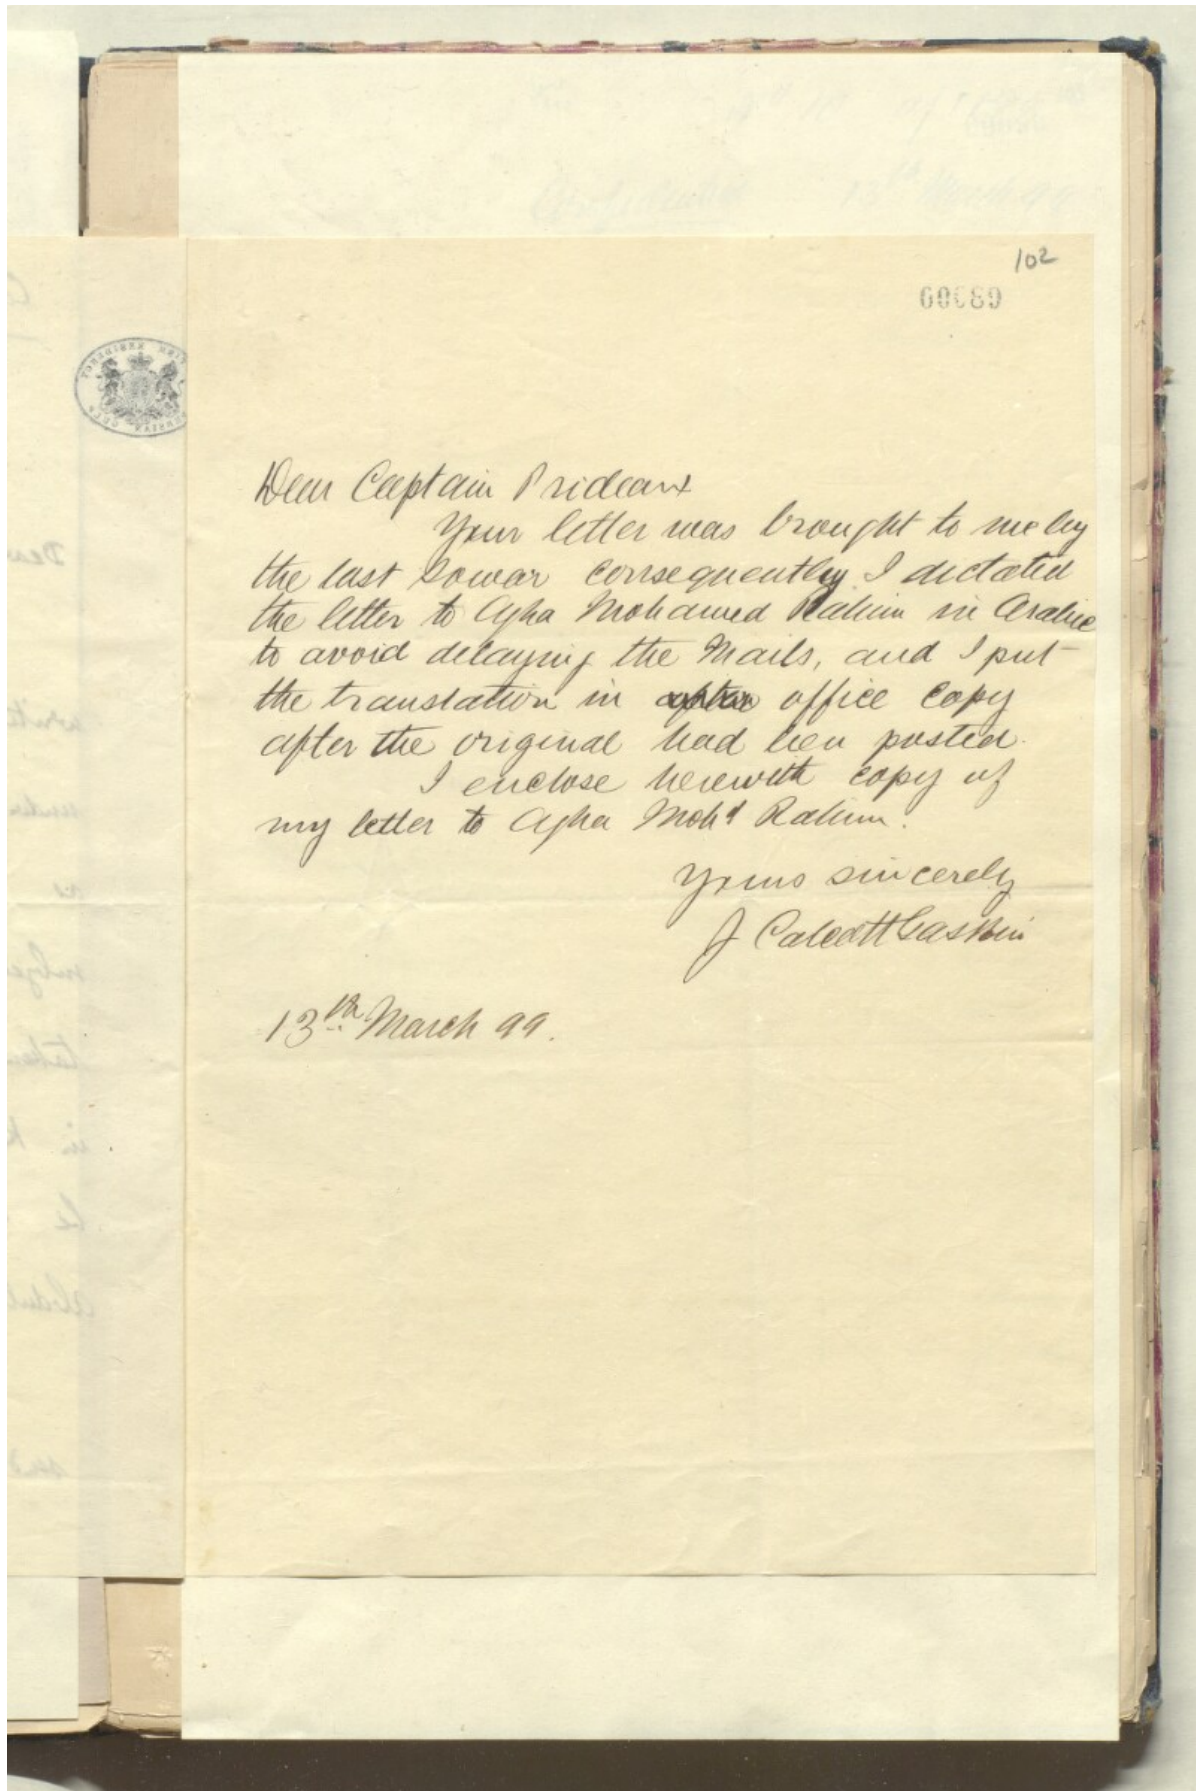 102
00089
Dear Captain Prideaux
Your letter was brought to me by
the last Sowar consequently I dictated
the letter to Agha Mohamed Rahim in Arabic
to avoid delaying the Mails, and I put
the translation in office copy
after the original had been posted.
I enclose herewith copy of
my letter to Agha Mohd Rahim.
Yours sincerely
J Calcott Gaskin
13th March 99.